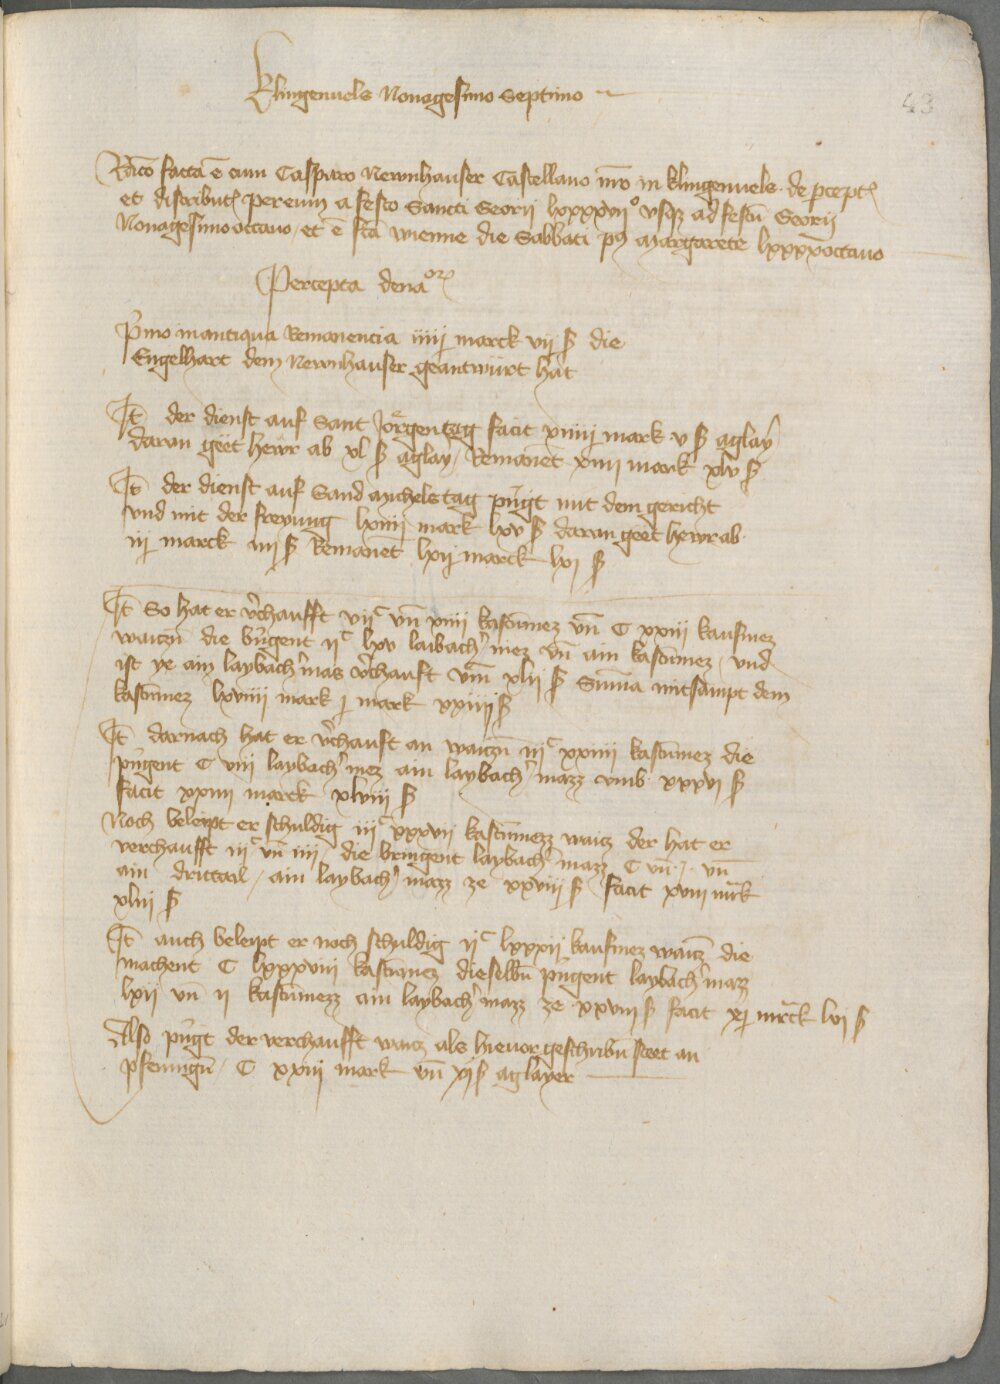 Klingenvels Nonagesimo Septimo
43
Racō facta ē cum Casparo Newnhauser Castellano nr̄o in klingenuels de percept
et distribut per eum a festo Sancti Georij lxxxxvijº vsq; ad festū Georij
Nonagesimo octauo et ē fc̄a wienne die Sabbati p9 Margarete lxxxxoctauo
Percepta denaorꝫ
Pͥmo in antiqua Remanencia iiij marck vij ₰ die
Engelhart dem Newnhauser geantwürt hat
It̄ der dienst auf Sant Jörgen tag facit xiiij mark v ₰ aglay
daran geet hewr ab xl ₰ aglay / Remanet xiij mark xlv ₰
It̄ der dienst auf Sand Michels tag pringt mit dem gericht
vnd mit der freyung lxiiij mark lxv ₰ daran geet hewr ab
iij marck iiij ₰ Remanet lxij marck lxj ₰
It̄ So hat er v̓chaufft vijᶜ vn̄ xiiij kastūmez vn̄ C xxiij kaufmez
waiczn̄ die br̓ngent ijᶜ lxv laibach̓ mez vn̄ ain kastūmez / vnd
ist ye ain laybach̓ mas v̓chauft vm̄ xlij ₰ Sum̄a mitsampt dem
kastūmez lxviiij mark j mark xxiiij ₰
It̄ darnach hat er v̓chauft an waiczn̄ iijᶜ xxiiij kastūmez die
pr̓ngent C viij laybach̓ mez ain laybach̓ mazz vmb xxxvj ₰
facit xxiiij marck xlviij ₰
Noch beleipt er schuldig iijᶜ xxxvij kastūmezz waicz der hat er
verchaufft iijᶜ vn̄ iiij / die bringent laybach̓ mazz C vn̄ j vn̄
ain drittail / ain laybach̓ mazz ze xxviij ₰ facit xviij mr̄k
xliij ₰
It̄ auch beleipt er noch schuldig ijᶜ lxxxij kaufmez waicz die
machent C lxxxviij kastūmez dieselbn̄ pr̓ngent laybach̓ mazz
lxij vn̄ ij kastūmezz ain laybach̓ mazz ze xxviij ₰ facit xj mr̄ck lvj ₰
Also pr̓ngt der verchaufft waicz als hieuor geschribn̄ steet an
pfenningn̄ / C xxiij mark vn̄ xj ₰ aglayer